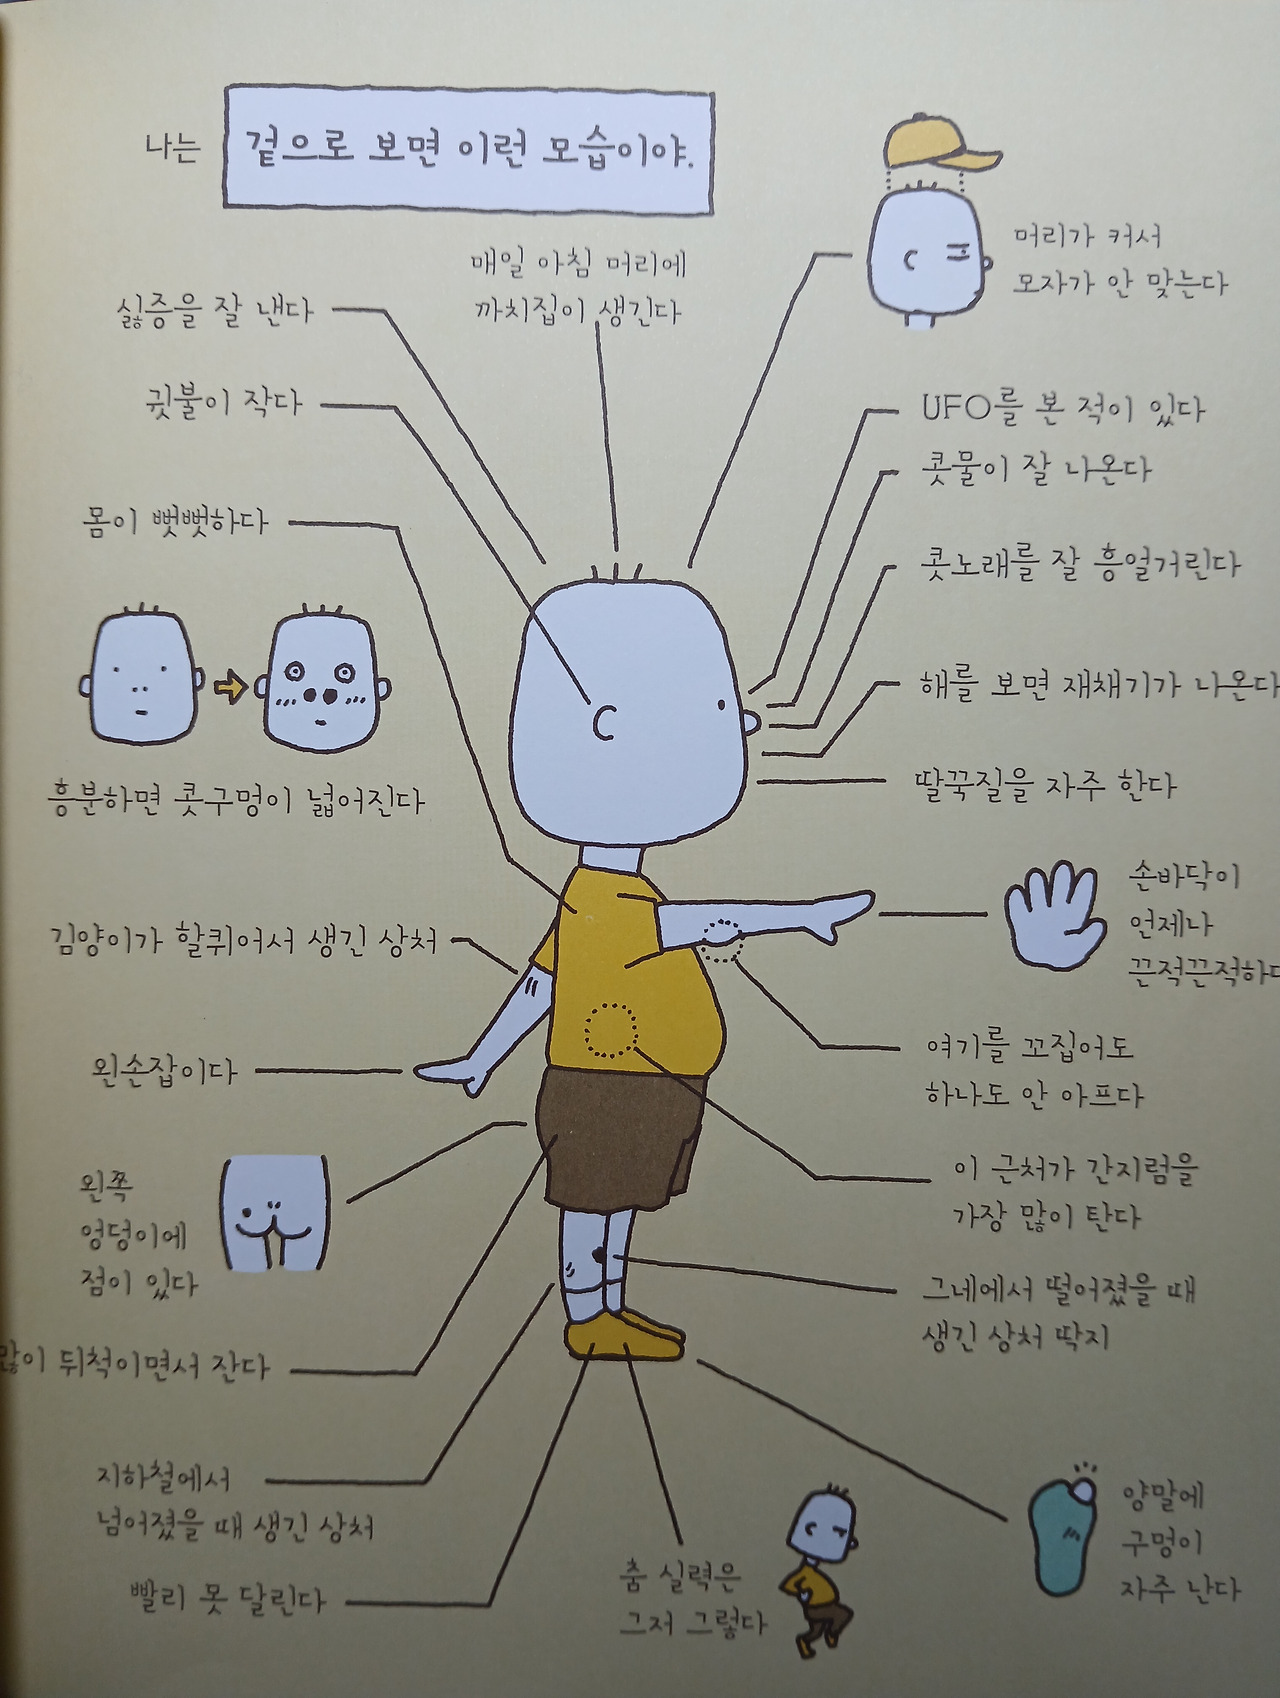 나는 겉으로 보면 이런 모습이야.
매일 아침 머리에
까치집이 생긴다
머리가 커서
모자가 안 맞는다
싫증을 잘 낸다
귓불이 작다
몸이 뻣뻣하다
흥분하면 콧구멍이 넓어진다
김양이가 할퀴어서 생긴 상처
왼손잡이다
왼쪽
엉덩이에
점이 있다
많이 뒤척이면서 잔다
지하철에서
넘어졌을 때 생긴 상처
빨리 못 달린다
UFO를 본 적이 있다
콧물이 잘 나온다
콧노래를 잘 흥얼거린다
해를 보면 재채기가 나온다
딸꾹질을 자주 한다
손바닥이
언제나
끈적끈적하다
여기를 꼬집어도
하나도 안 아프다
이 근처가 간지럼을
가장 많이 탄다
그네에서 떨어졌을 때
생긴 상처 딱지
양말에
구멍이
자주 난다
춤 실력은
그저 그렇다